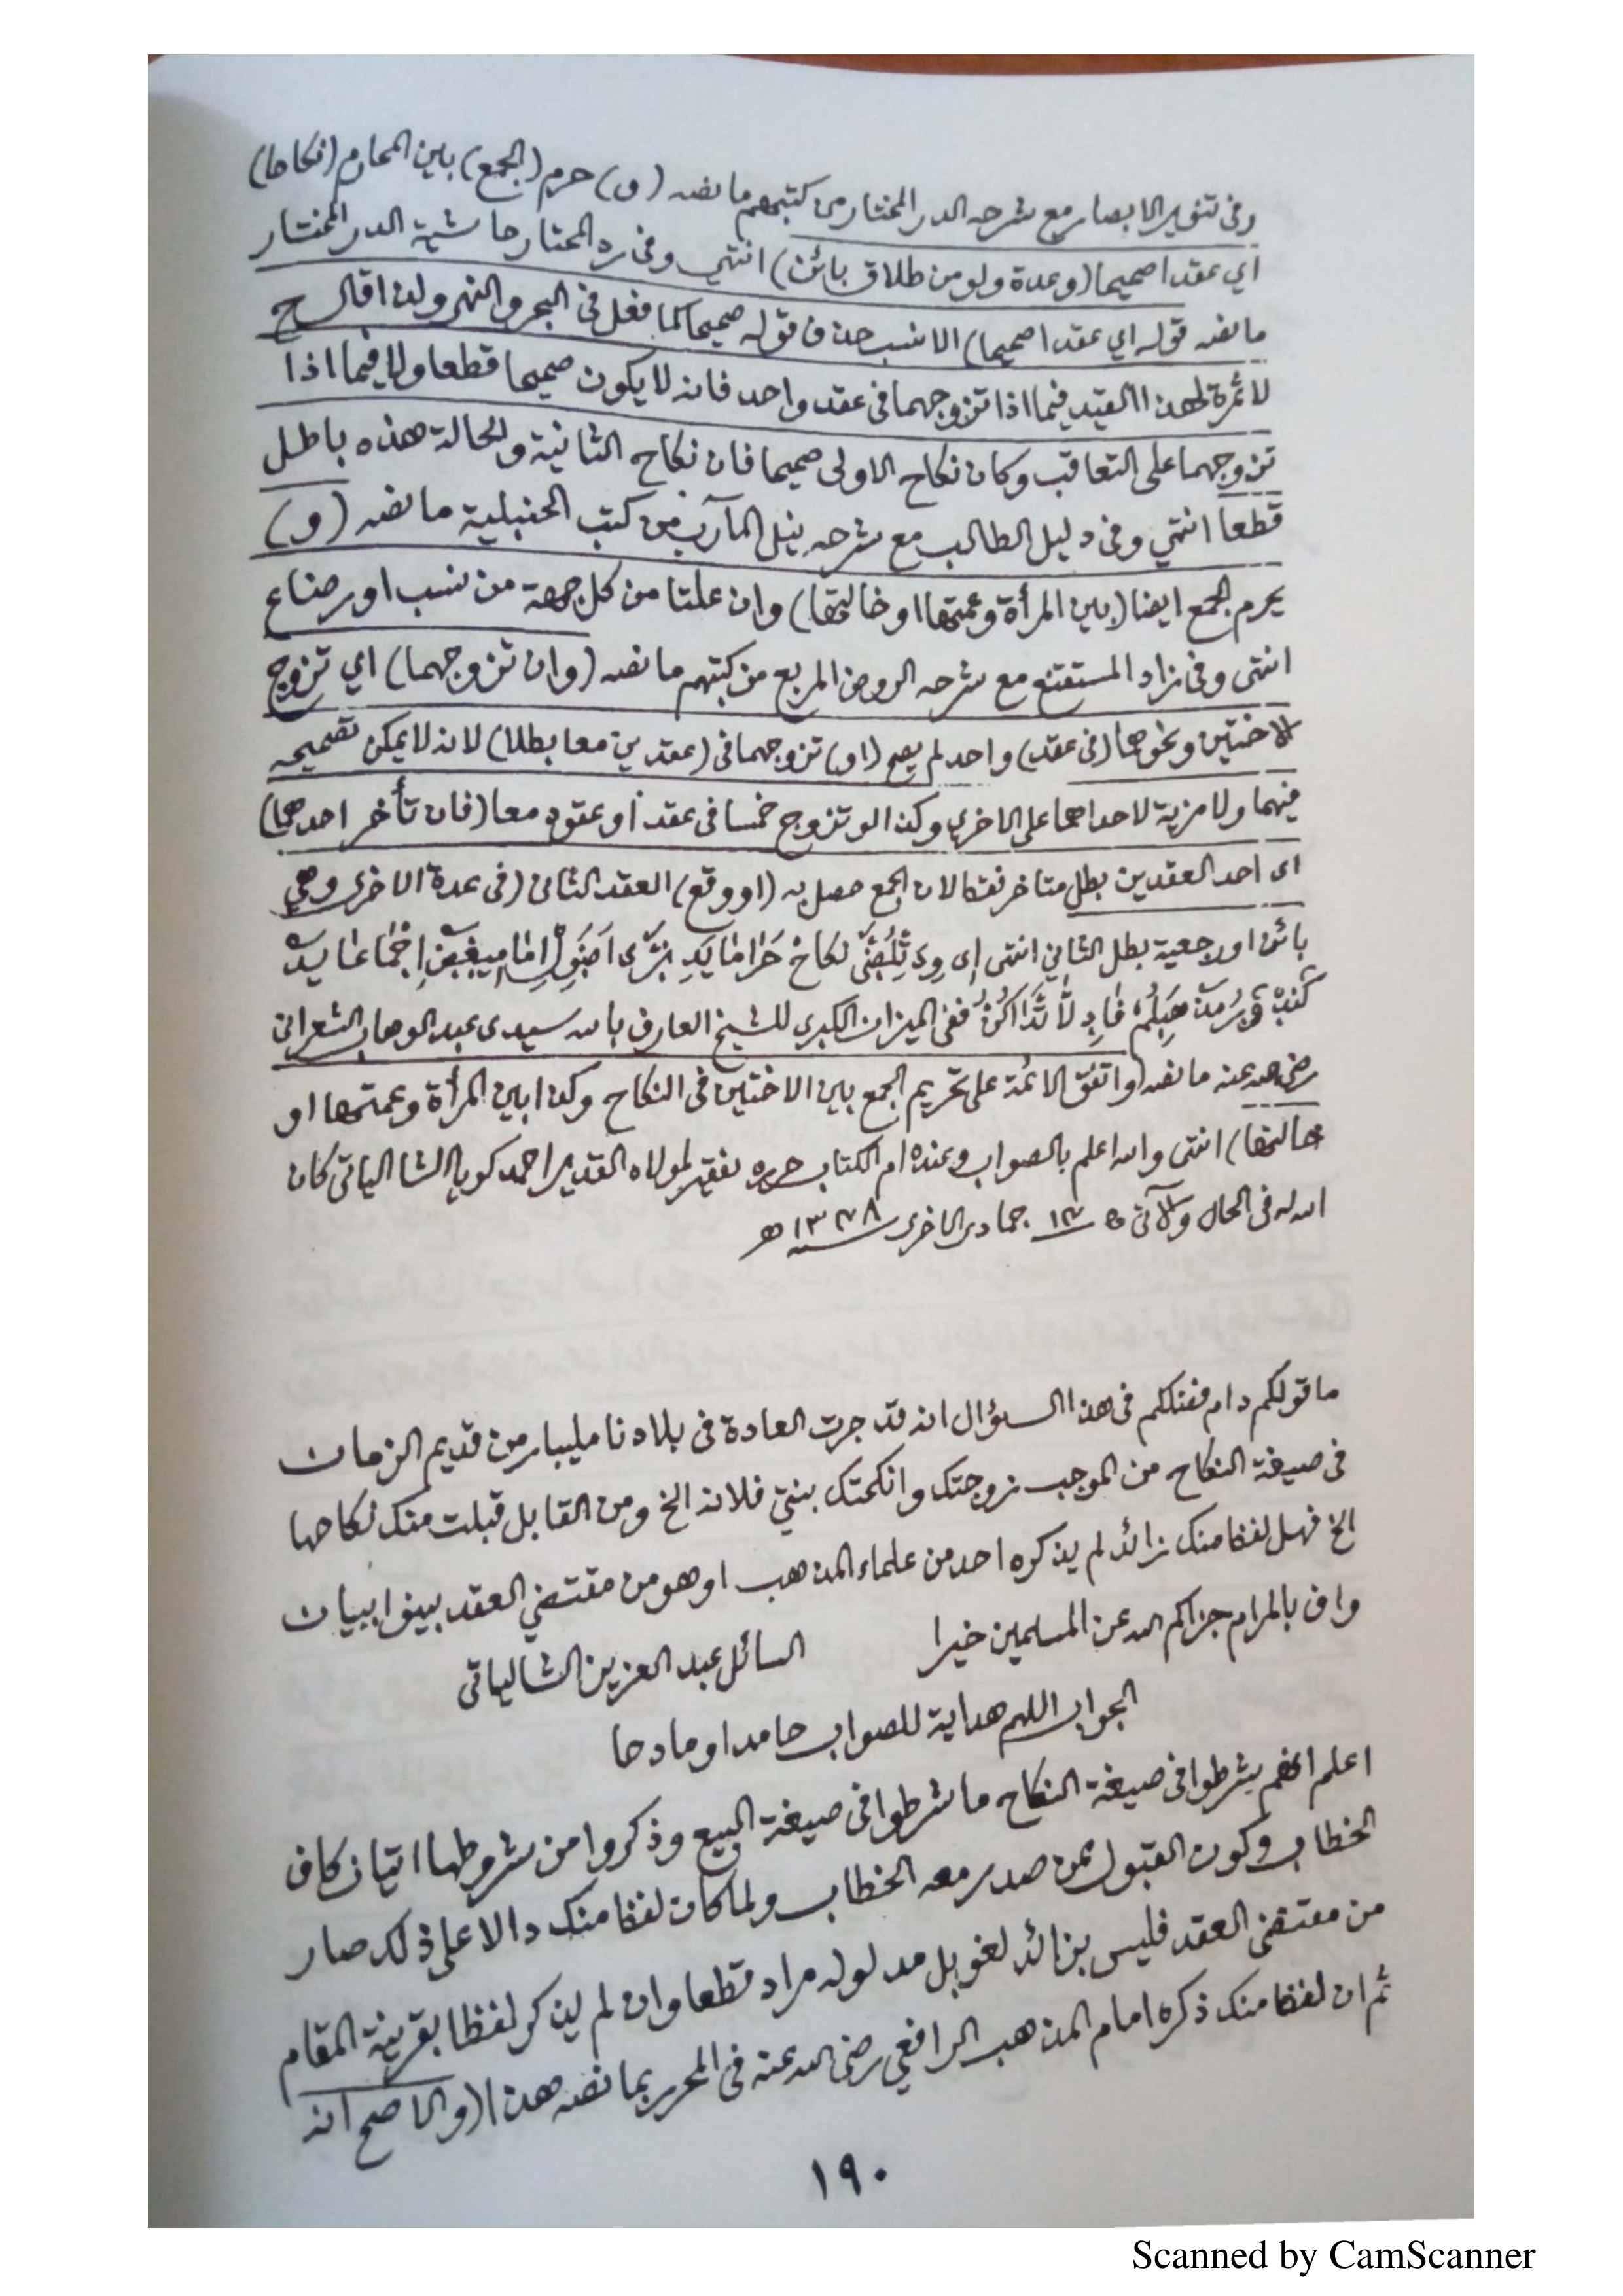 وفى تنوير الابصار مع شرحه الدر المختار من كتبهم ما نصه (و) حرم (الجمع) بين المحارم (نكاحا)
اي عقدا صحيحا (وعدة ولو من طلاق بائن) انتهى وفى رد المحتار حاشية الدر المختار
ما نصه قوله اي عقدا صحيحا) الانسب حذف قوله صحيحا كما فعل فى البحر والنهر ولذا قال ح
لا ثمرة لهذا القيد فيما اذا تزوجهما فى عقد واحد فانه لا يكون صحيحا قطعا ولا فيما اذا
تزوجهما على التعاقب وكان نكاح الاولى صحيحا فان نكاح الثانية والحالة هذه باطل
قطعا انتهى وفى دليل الطالب مع شرحه نيل المآرب من كتب الحنبلية ما نصه (و)
يحرم الجمع ايضا (بين المرأة وعمتها او خالتها) وان علتا من كل جهة من نسب او رضاع
انتهى وفى زاد المستقنع مع شرحه الروض المربع من كتبهم ما نصه (وان تزوجهما) اي تزوج
الاختين ونحوهما (فى عقد) واحد لم يصح (او) تزوجهما فى (عقدين معا بطلا) لانه لا يمكن تصحيحه
فيهما ولا مزية لاحداهما على الاخرى وكذا لو تزوج خمسا فى عقد او عقود معا (فان تأخر احدهما)
اى احد العقدين بطل متاخر فقط لان الجمع حصل به (او وقع) العقد الثانى (فى عدة الاخرى وهي
بائن او رجعية بطل الثاني انتهى نكاح
ففى الميزان الكبرى للشيخ العارف بالله سيدى عبد الوهاب الشعرانى
رضي الله عنه ما نصه (واتفق الائمة على تحريم الجمع بين الاختين فى النكاح وكذا بين المرأة وعمتها او
خالتها) انتهى والله اعلم بالصواب وعنده ام الكتاب حرره فقير لمولاه القدير احمد كويا الشالياتى كان
الله له فى الحال والآتى جمادى الاخرى هـ
ما قولكم دام فضلكم فى هذا السؤال انه قد جرت العادة فى بلادنا مليبار من قديم الزمان
فى صيغة النكاح من الموجب زوجتك وانكحتك بنتي فلانة الخ ومن القابل قبلت منك نكاحها
الخ فهل لفظ منك زائد لم يذكره احد من علماء المذهب او هو من مقتضي العقد بينوا ببيان
واف بالمرام جزاكم الله عن المسلمين خيرا السائل عبد العزيز الشالياتى
الجواب اللهم هداية للصواب حامدا ومادحا
اعلم انهم شرطوا فى صيغة النكاح ما شرطوا فى صيغة البيع وذكروا من شروطها اتيان كاف
الخطاب وكون القبول ممن صدر معه الخطاب ولما كان لفظ منك دالا على ذلك صار
من مقتضى العقد فليس بزائد لغو بل مدلوله مراد قطعا وان لم يذكر لفظا بقرينة المقام
ثم ان لفظ منك ذكره امام المذهب الرافعي رضى الله عنه فى المحرر بما نصه هذا (والاصح انه
١٩٠
Scanned by CamScanner